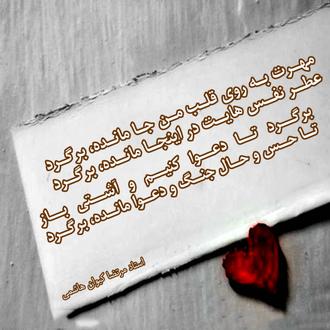 مهرت به روی قلب من جا مانده، برگرد
عطر نفس هایت در اینجا مانده، برگرد
برگرد تا دعوا کنیم و آشتی باز
تا حس و حال جنگ و دعوا مانده، برگرد
استاد مرتضا کیوان هاشمی